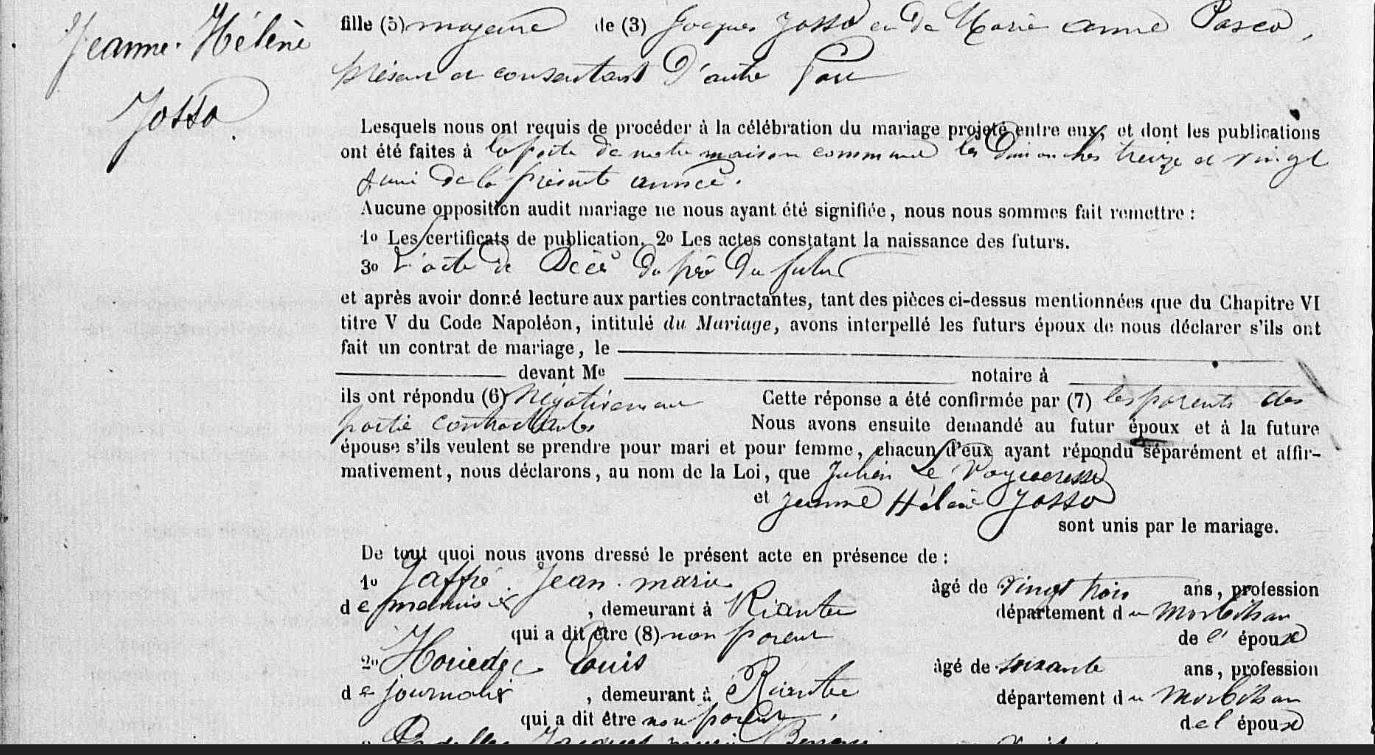 Jeanne Hélène
Josso
fille (5) majeure de (3) Jacques Josso et de Marie Anne Pasco,
présent et consentant D'autre Part
Lesquels nous ont requis de procéder à la célébration du mariage projeté entre eux, et dont les publications
ont été faites à la porte de notre maison commune les Dimanches treize et vingt
juin de la présente année.
Aucune opposition audit mariage ne nous ayant été signifiée, nous nous sommes fait remettre :
1o Les certificats de publication. 2o Les actes constatant la naissance des futurs.
3o L'acte de Décès du père du futur
et après avoir donné lecture aux parties contractantes, tant des pièces ci-dessus mentionnées que du Chapitre VI
titre V du Code Napoléon, intitulé du Mariage, avons interpellé les futurs époux de nous déclarer s'ils ont
fait un contrat de mariage, le
devant Me notaire à
ils ont répondu (6) Négativement Cette réponse a été confirmée par (7) les parents des
partie contractantes Nous avons ensuite demandé au futur époux et à la future
épouse s'ils veulent se prendre pour mari et pour femme, chacun d'eux ayant répondu séparément et affir-
mativement, nous déclarons, au nom de la Loi, que Julien Le
et Jeanne Hélène Josso
sont unis par le mariage.
De tout quoi nous avons dressé le présent acte en présence de :
1o Jaffré Jean marie âgé de vingt trois ans, profession
de , demeurant à Riantec département du Morbihan
qui a dit être (8) non parent de l'épouse
2o Louis âgé de soixante ans, profession
de journalier , demeurant à Riantec département du Morbihan
qui a dit être non parent de l'épouse